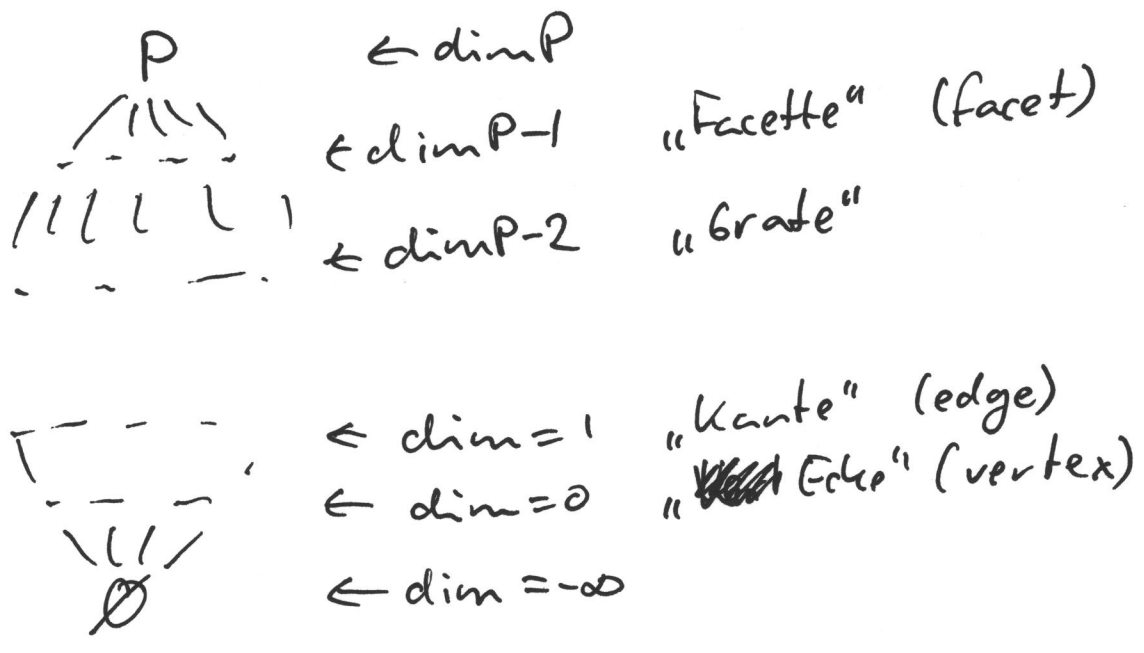 P ← dim P
← dim P-1 „Facette“ (facet)
← dim P-2 „Grate“
← dim = 1 „Kante“ (edge)
← dim = 0 „Ecke“ (vertex)
∅ ← dim = -∞